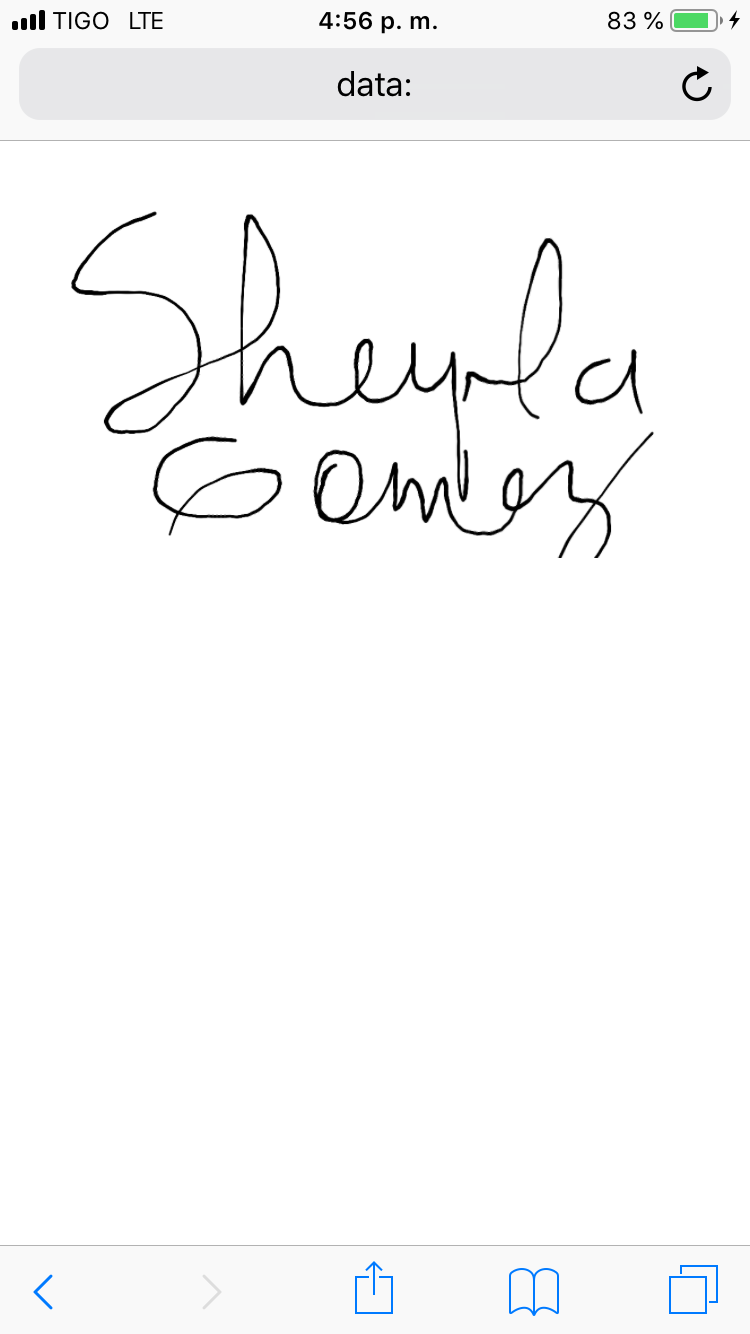 TIGO LTE 4:56 p. m. 83 %
data:
Sheyla
Gomez